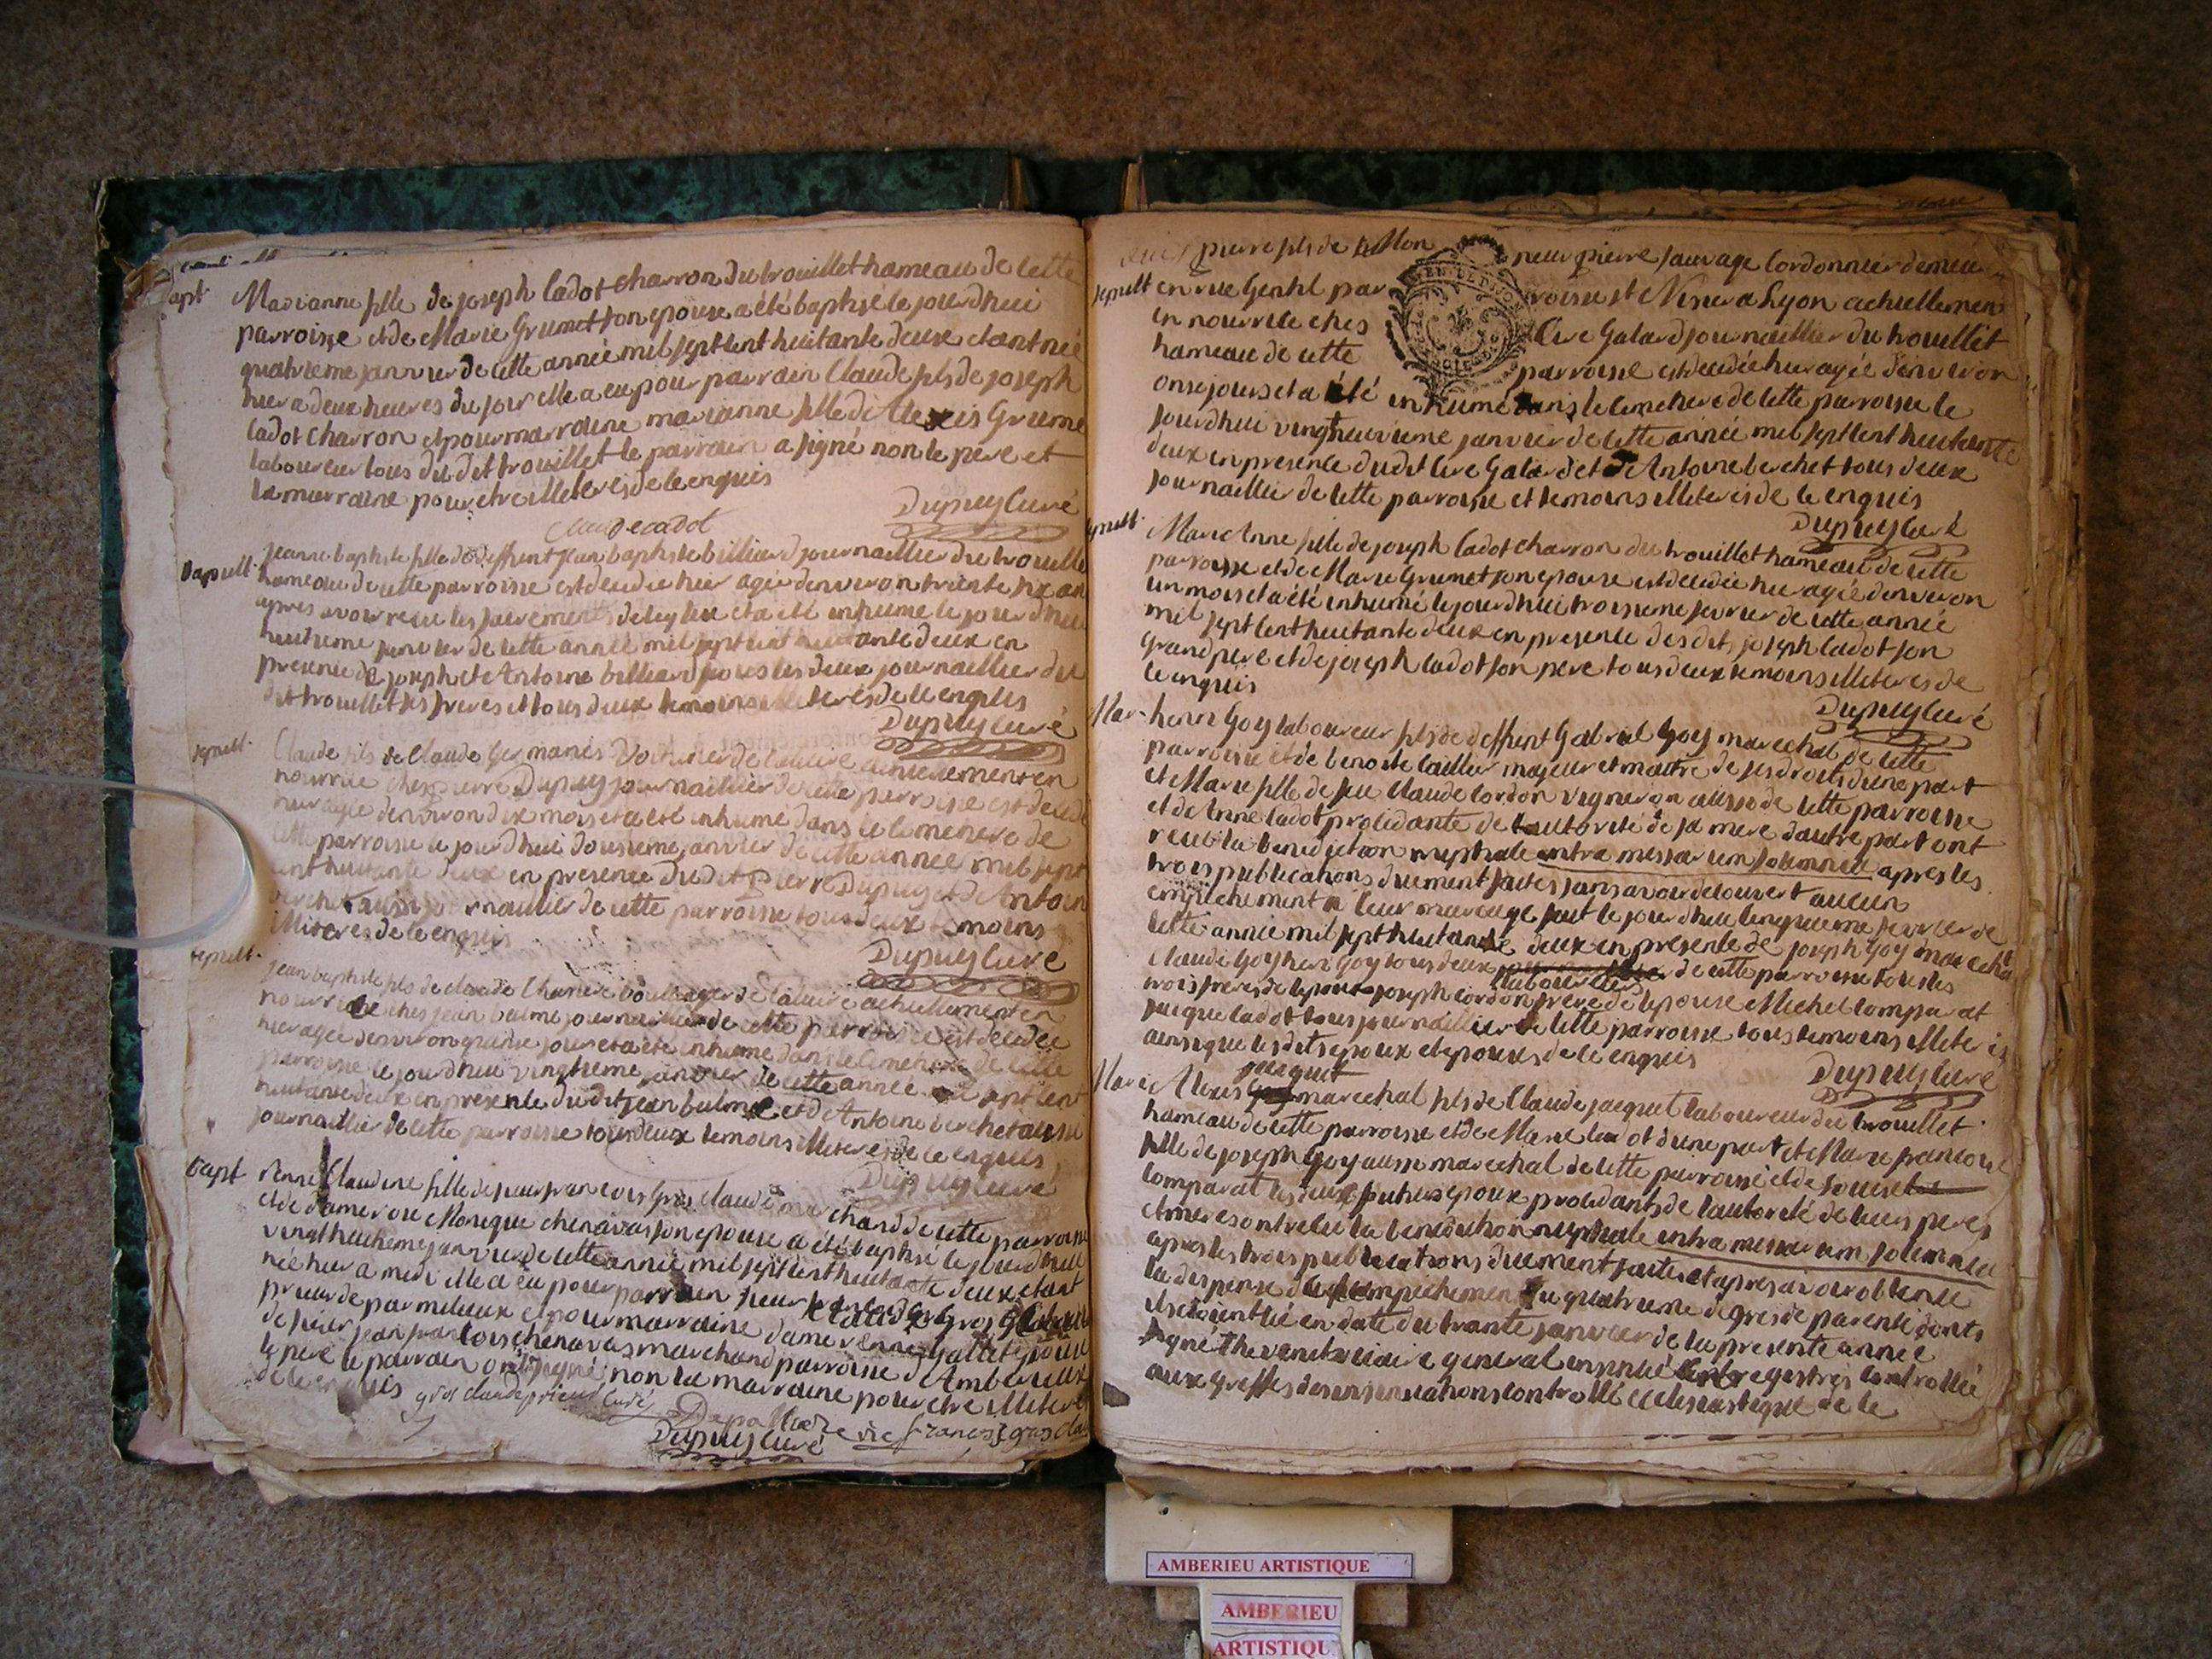 Bapt
Marianne fille de joseph Cadot charron du trouillet hameau de cette
parroisse et de Marie Grumet son epouse a été baptisé le jourdhui
quatrieme janvier de cette année mil sept cent huitante deux etant née
hier a deux heures du jour elle a eu pour parrain Claude fils de joseph
Cadot Charron et pour marraine marianne fille de Alexis Grume
laboureur tous du dit trouillet le parrain a signé non le pere et
la marraine pour etre illiteres de ce enquis
Dupuy Curé
Claude cadot
Sepult.
jeanne baptiste fille de deffunt jean baptiste billiard journaillier du trouille
hameau de cette parroisse est decedée hier agée denviron trente six an
apres avoir recu les sacrements de leglise et a été inhumé le jourdhui
huitieme janvier de cette année mil sept cent huitante deux en
presence de joseph et Antoine billiard tous les deux journaillier du
dit trouillet ses freres et tous deux temoins illiteres de ce enquis
Dupuy Curé
sepult.
Claude fils de Claude Germanes Voiturier de actuellement en
nourrice ches pierre Dupuy journaillier de cette parroisse est decedé
hier agée denviron dix mois et a été inhumé dans le cimetiere de
cette parroisse le jourdhui dousieme janvier de cette année mil sept
cent huitante deux en presence du dit pierre Dupuy et de Antoin
berchet aussi journaillier de cette parroisse tous deux temoins
illiteres de ce enquis
Dupuy Curé
sepult.
jean baptiste fils de claude boullanger de actuellement en
nourrice ches jean balme journaillier de cette parroisse est decedée
hier agée denviron quinse jour et a été inhumé dans le cimetiere de cette
parroisse le jourdhui vingtieme janvier de cette année mil sept cent
huitante deux en presence du dit jean balme et de Antoine berchet aussi
journaillier de cette parroisse tous deux temoins illiteres de ce enquis
Dupuy Curé
Bapt
renne Claudine fille de sieur francois Gros Claude marchand de cette parroisse
et de dame Monique chenavas son epouse a été baptisé le jourdhui
vingt huitieme janvier de cette année mil sept cent huitante deux etant
née hier a midi elle a eu pour parrain sieur Gros Claude
prieur de parmilieux et pour marraine dame renne Gallet epouse
de sieur jean francois chenavas marchand parroisse d'Amberieux
le pere le parrain ont signé non la marraine pour etre illitere
de ce enquis
gros claude prieur curé
francois gros Cla
Dupuy Curé
sepult
pierre fils de Mon sieur pierre sauvage Cordonnier demeu
en rue Gentil par roisse st Nisier a Lyon actuellement
en nourrice ches Cire Galard journaillier du trouillet
hameau de cette parroisse est decedée hier agée denviron
onse jours et a été inhumé dans le cimetiere de cette parroisse le
jourdhui vingtneuvieme janvier de cette année mil sept cent huitante
deux en presence du dit Cire Galard et de Antoine berchet tous deux
journaillier de cette parroisse et temoins illiteres de ce enquis
Dupuy Curé
sepult.
Marie Anne fille de joseph Cadot charron du trouillet hameau de cette
parroisse et de Marie Grumet son epouse est decedée hier agée denviron
un mois et a été inhumé le jourdhui troisieme fevrier de cette année
mil sept cent huitante deux en presence desdits joseph Cadot son
grand pere et de joseph Cadot son pere tous deux temoins illiteres de
ce enquis
Dupuy Curé
Mar.
henri Goy laboureur fils de deffunt Gabriel Goy marechal de cette
parroisse et de benoite Caillier majeur et maitre de ses droits dune part
et Marie fille de feu Claude Cordon vigneron aussi de cette parroisse
et de Anne Cadot procedante de lautorité de sa mere dautre part ont
recu la benediction nuptiale intra missarum solemnia apres les
trois publications duement faites sans avoir decouvert aucun
empechement a leur mariage fait le jourdhui cinquieme fevrier de
cette année mil sept huitante deux en presence de joseph Goy marecha
Claude Goy heri Goy tous deux laboureurs de cette parroisse tous les
trois freres de lepoux joseph Cordon frere de lepouse Michel Comparat
jacque Cadot tous journaillier de cette parroisse tous temoins illiteres
ainsi que lesdits epoux et epouses de ce enquis
Dupuy Curé
Mari
Alexis jacquet marechal fils de Claude jacquet laboureur du trouillet
hameau de cette parroisse et de Marie Cadot dune part et Marie francoise
fille de joseph Goy aussi marechal de cette parroisse et de
Comparat les deux futurs epoux procedants de lautorité de leurs peres
et meres ont recu la benediction nuptiale intra missarum solemnia
apres les trois publications duement faites et apres avoir obtenu
la dispense de lempechement du quatrieme degres de parenté donts
ils etoient lié en date du trante janvier de la presente année
signé vicaire general insinué registres controllée
aux greffes des insinuations controlle ecclesiastique de le
AMBERIEU ARTISTIQUE
AMBERIEU
ARTISTIQU